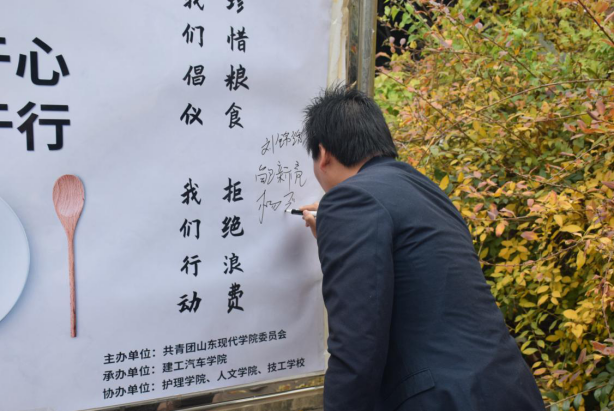 珍惜粮食 拒绝浪费
我们倡仪 我们行动
心
行
刘
主办单位：共青团山东现代学院委员会
承办单位：建工汽车学院
协办单位：护理学院、人文学院、技工学校